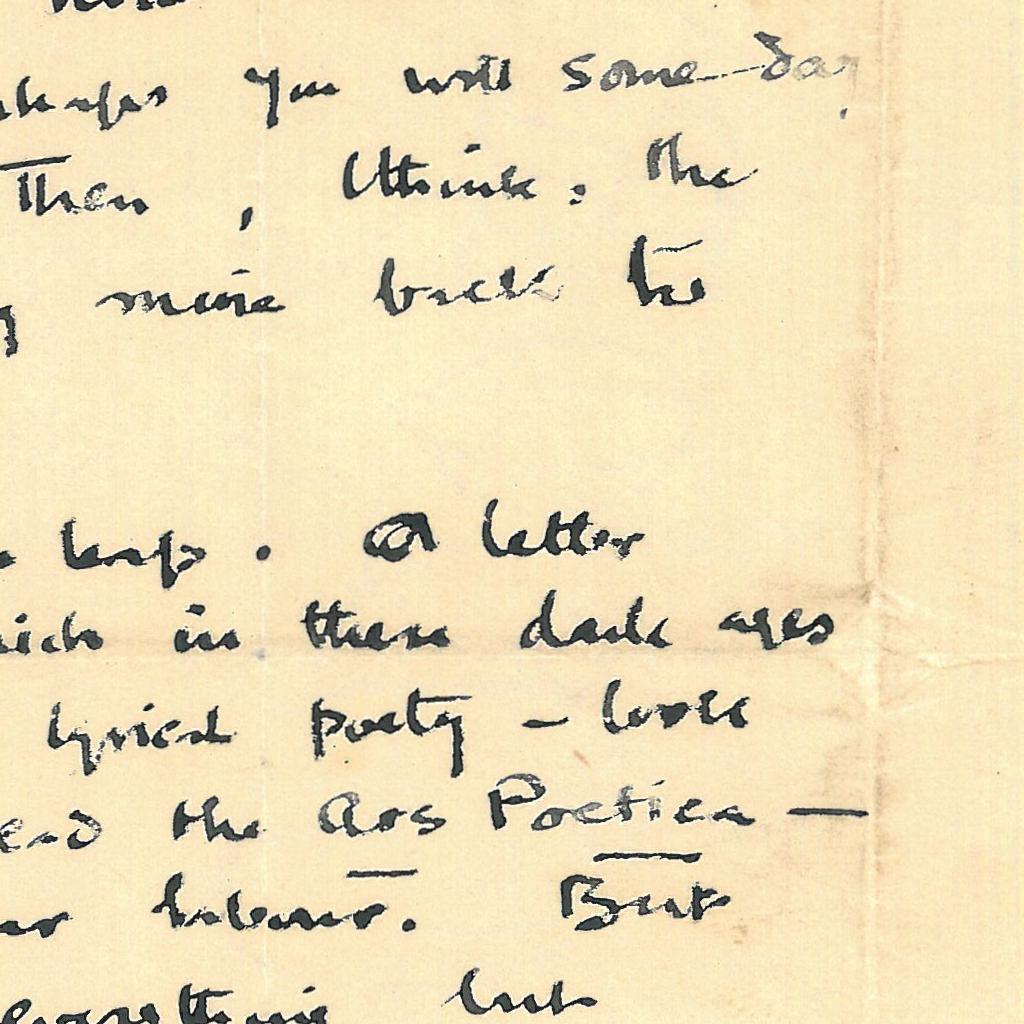 perhaps you will some day,
Then, I think, the
more back to
. A letter
which in these dark ages
lyrical poetry - look
read the Ars Poetica —
labour. But
everything but